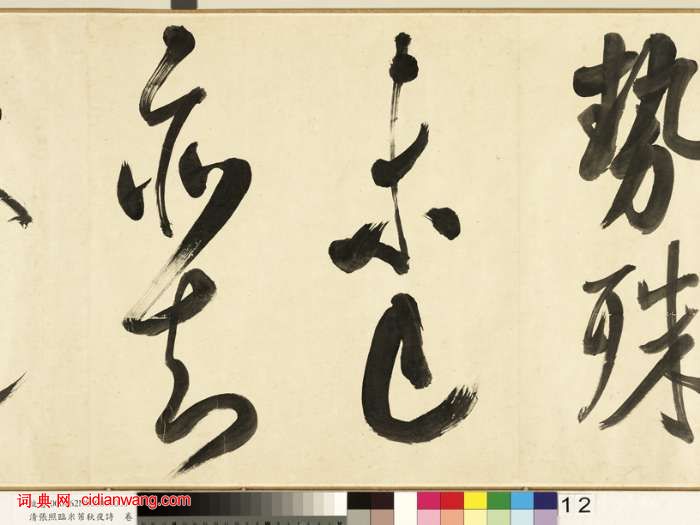 勢殊
未已
亦知
词典网 cidianwang.com
清張照臨米芾秋夜詩 卷
12